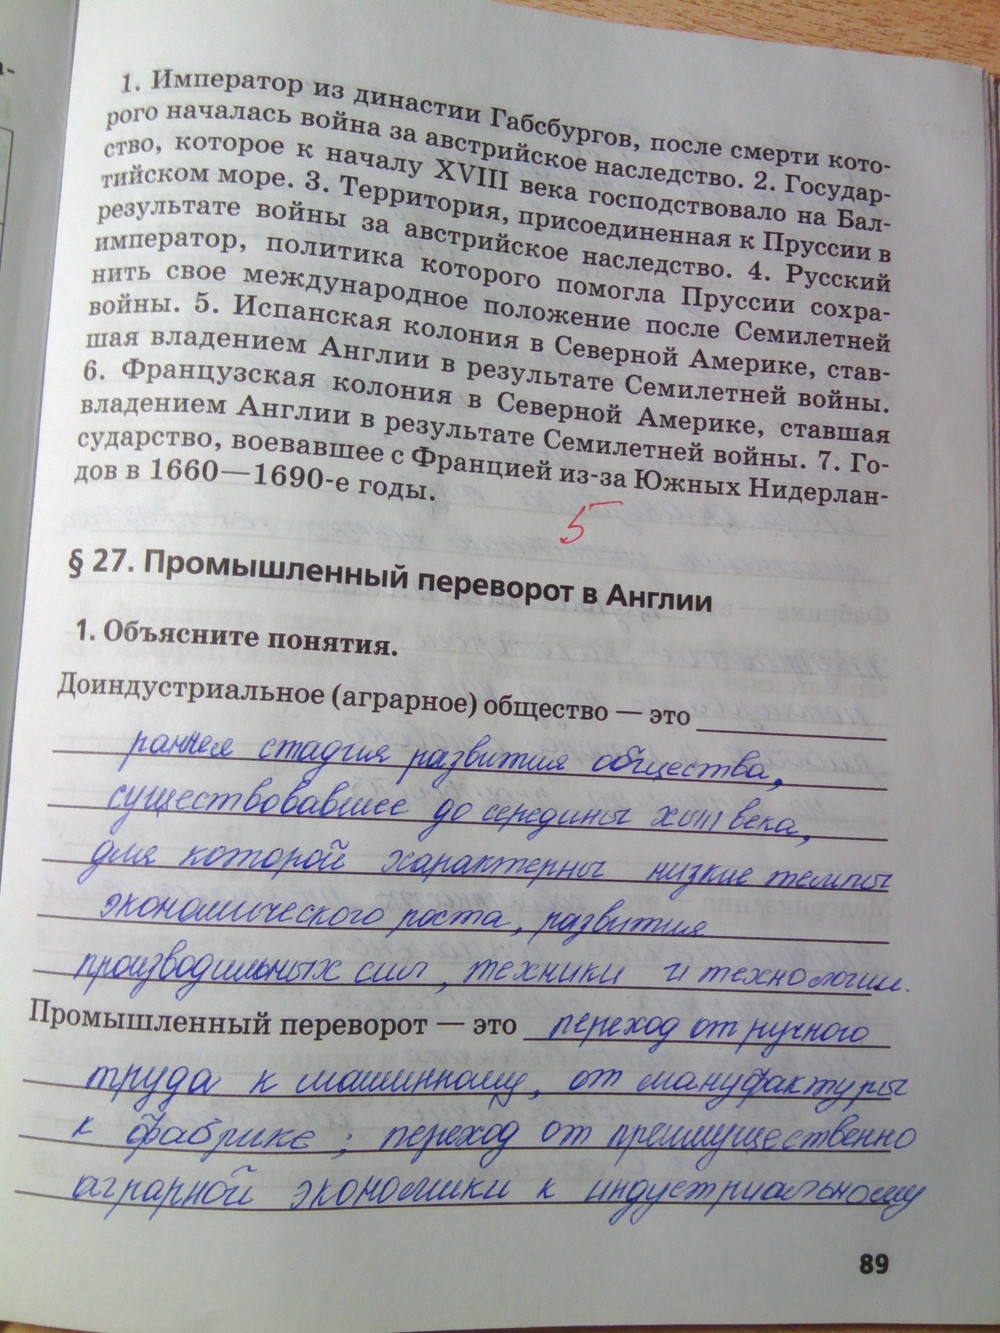 1. Император из династии Габсбургов, после смерти кото-
рого началась война за австрийское наследство. 2. Государ-
ство, которое к началу XVIII века господствовало на Бал-
тийском море. 3. Территория, присоединенная к Пруссии в
результате войны за австрийское наследство. 4. Русский
император, политика которого помогла Пруссии сохра-
нить свое международное положение после Семилетней
войны. 5. Испанская колония в Северной Америке, став-
шая владением Англии в результате Семилетней войны.
6. Французская колония в Северной Америке, ставшая
владением Англии в результате Семилетней войны. 7. Го-
сударство, воевавшее с Францией из-за Южных Нидерлан-
дов в 1660—1690-е годы.
5
§ 27. Промышленный переворот в Англии
1. Объясните понятия.
Доиндустриальное (аграрное) общество — это
ранняя стадия развития общества,
существовавшее до середины XVIII века,
для которой характерны низкие темпы
экономического роста, развития
производильных сил, техники и технологии.
Промышленный переворот — это переход от ручного
труда к машинному, от мануфактуры
к фабрике; переход от преимущественно
аграрной экономики к индустриальному
89